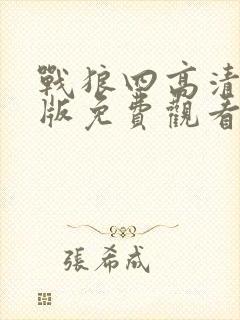 戰狼四高清
版免費觀看
張希成